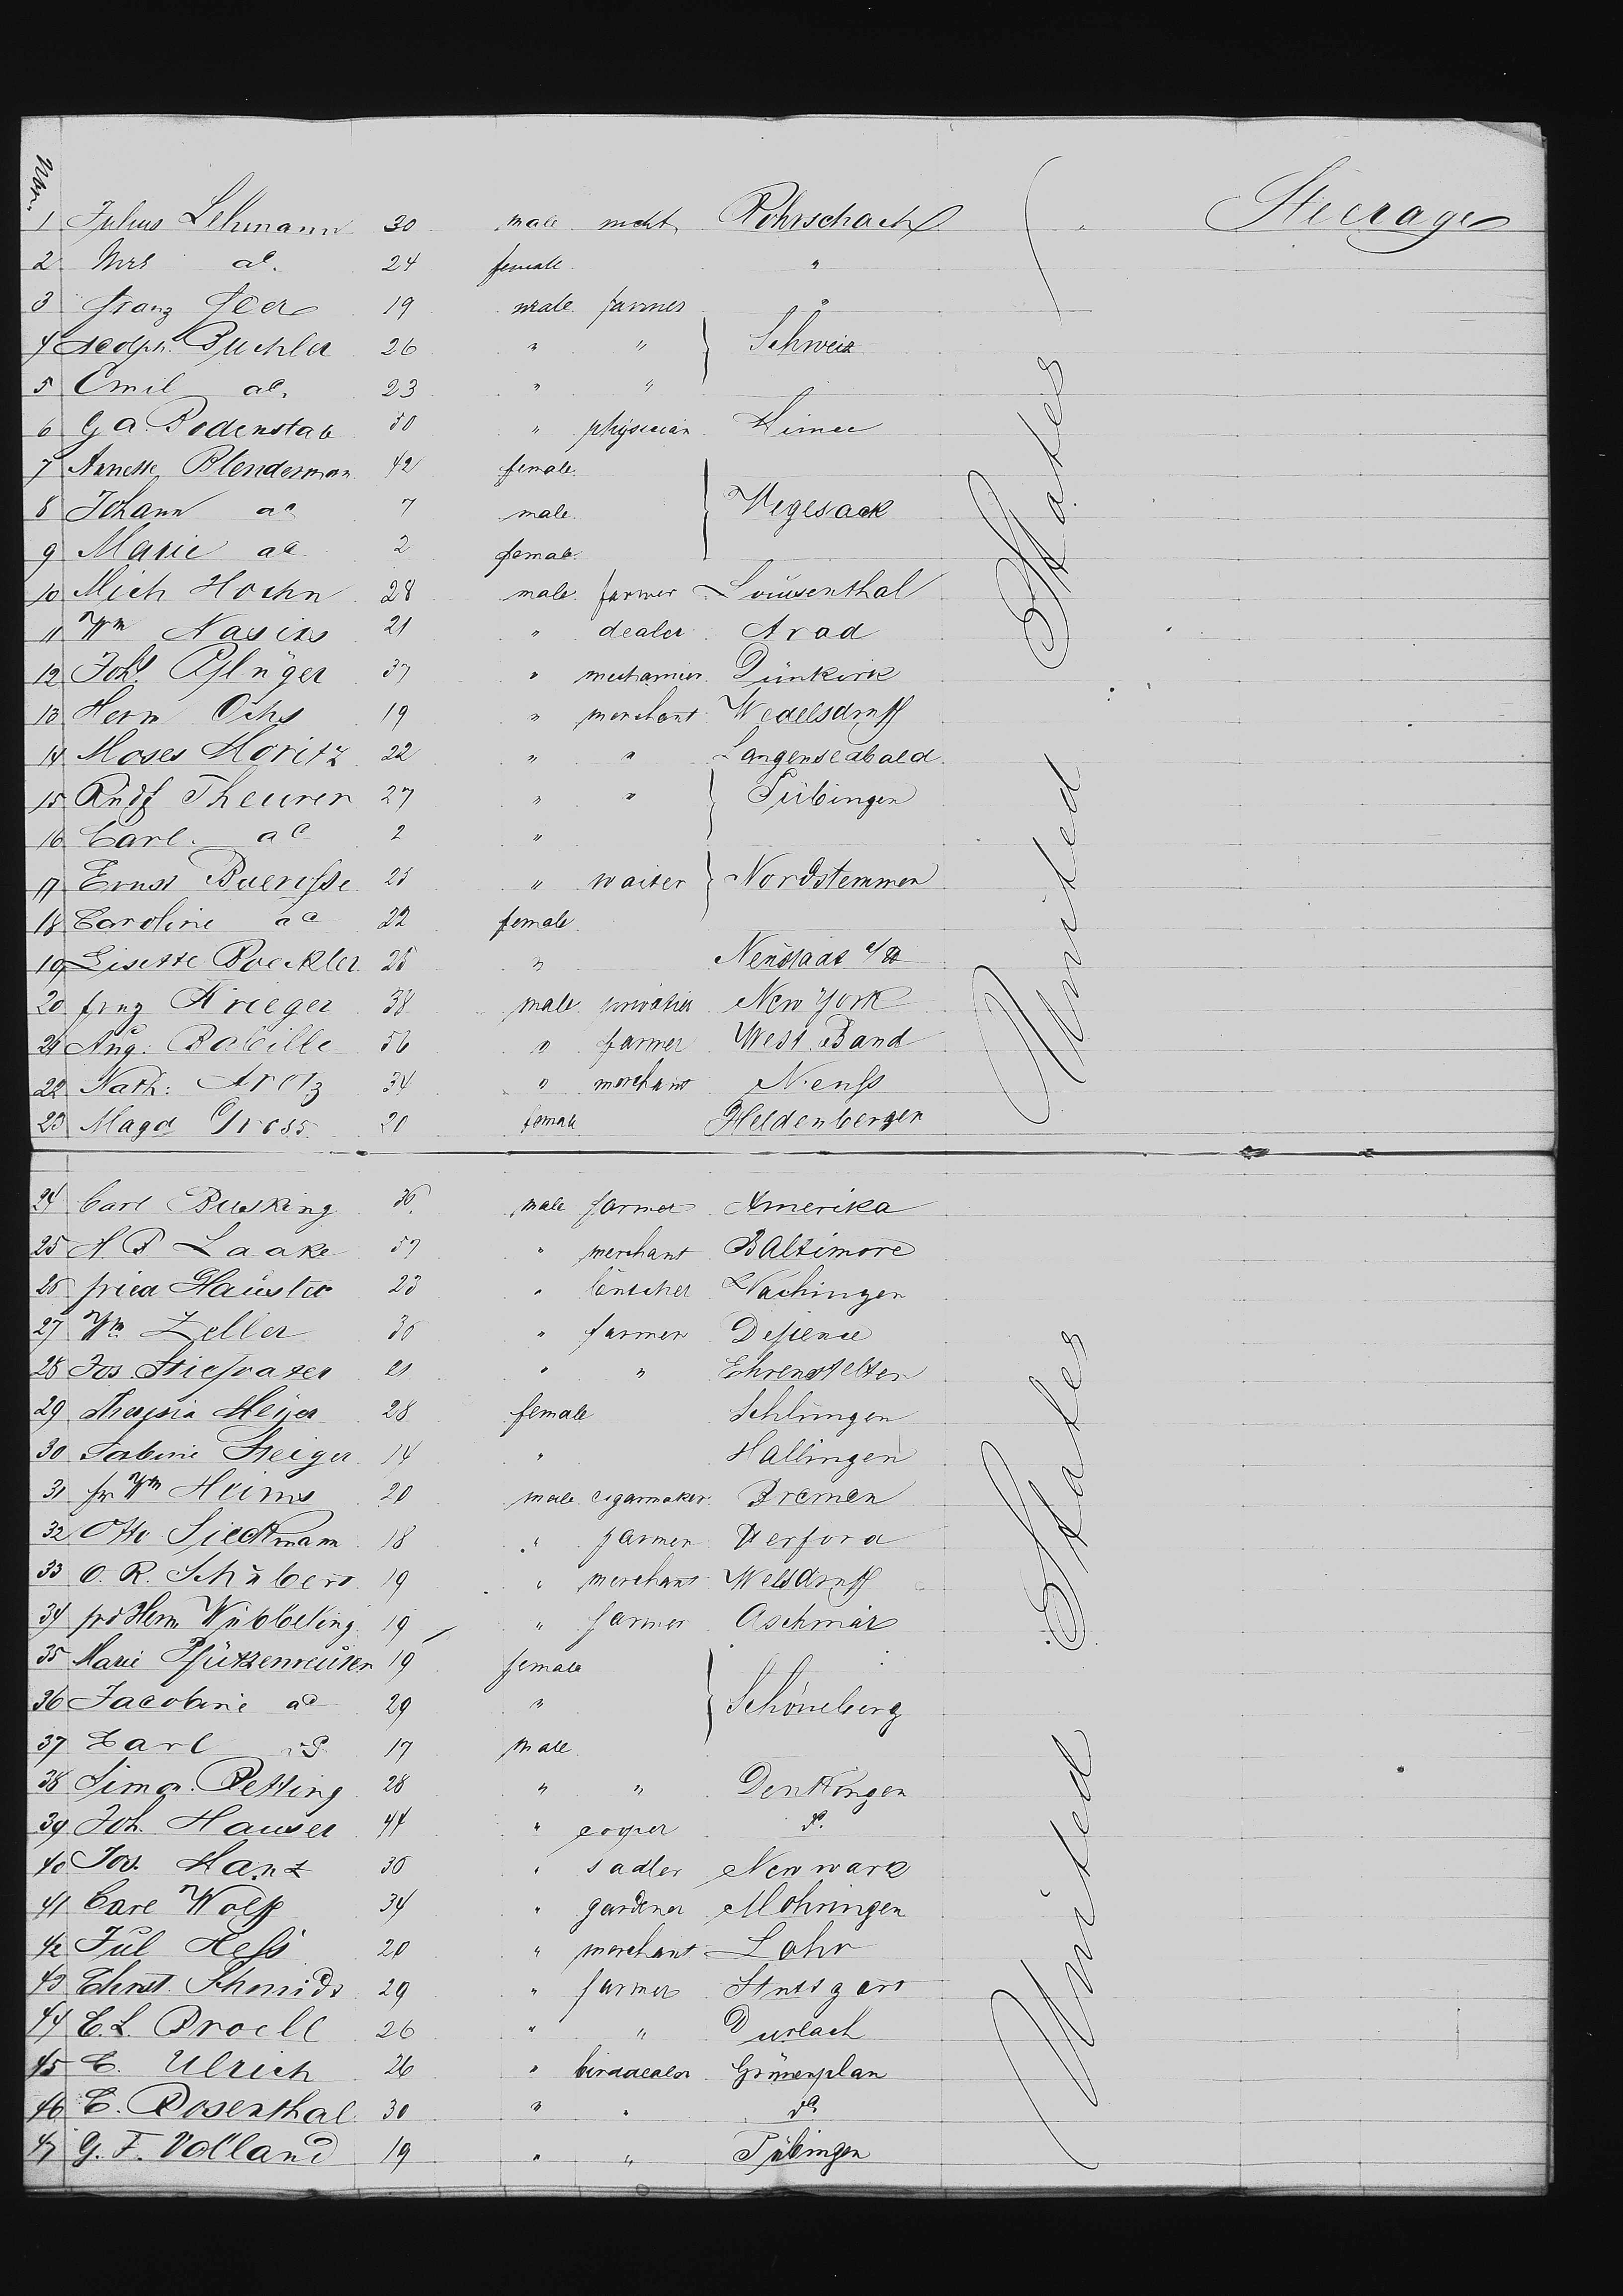 Nbr.
Steerage
1 Julius Lehmann 30 male mcht Rohrschach
2 Mrs do. 24 female "
3 Franz Heer 19 male farmer "
4 Adolph. Buchler 26 " " } Schweiz
5 Emil do. 23 " "
6 G A Bodenstab 50 " physician
7 Annette Blenderman 42 female
8 Johann do 7 male } Vegesack
9 Marie do 2 female
10 Mich Hoehn 28 male farmer Louisenthal
11 Wm 21 " dealer Arad
12 Joh. Pflüger 37 " mechanicr. Dünkirk
13 Herm Ochs 19 " merchant
14 Moses Moritz 22 " " Langenselbold
15 Rudf Theurer 27 " " } Tübingen
16 Carl. do 2 "
17 Ernst 25 " waiter } Nordstemmen
18 Caroline do 22 female
19 Lisette Boeckler 25 "
20 Krieger 38 male privatier New York
21 Aug: 56 " farmer West Band
22 Nath: 34 " merchant Neuss
23 Magd Gross 20 female Heldenbergen
24 Carl Busking 36. male farmer Amerika
25 H B Laake 57 " merchant Baltimore
26 23 "
27 Wm Zeller 36 " farmer Defience
28 Jos. Stiefvater 21 " "
29 Theresia Meyer 28 female
30 Sabine Steiger 14 "
31 Fr Wm Heims 20 male cigarmaker Bremen
32 Otto Sieckmann 18 " farmer Herford
33 O. R. Schubert 19 " merchant
34 Frd Herm Wübbeling 19 " farmer
35 Marie Pfützenreuter 19 female
36 Jacobine do 29 " } Schöneberg
37 Carl do 17 male
38 Simon Retting 28 " " Denkingen
39 Joh. Hauser 44 " cooper do.
40 Jos. Hanz 36 " sadler Newwark
41 Carl Wolff 34 " gardener Mohringen
42 Jul Hess 20 " merchant Lahr
43 Schmidt 29 " farmer Stuttgart
44 E. L. Proell 26 " " Durlach
45 C. Ulrich 26 " birddealer Grünenplan
46 C. Rosenthal 30 " " do
47 G. F. Volland 19 " " Tübingen
United States
United States